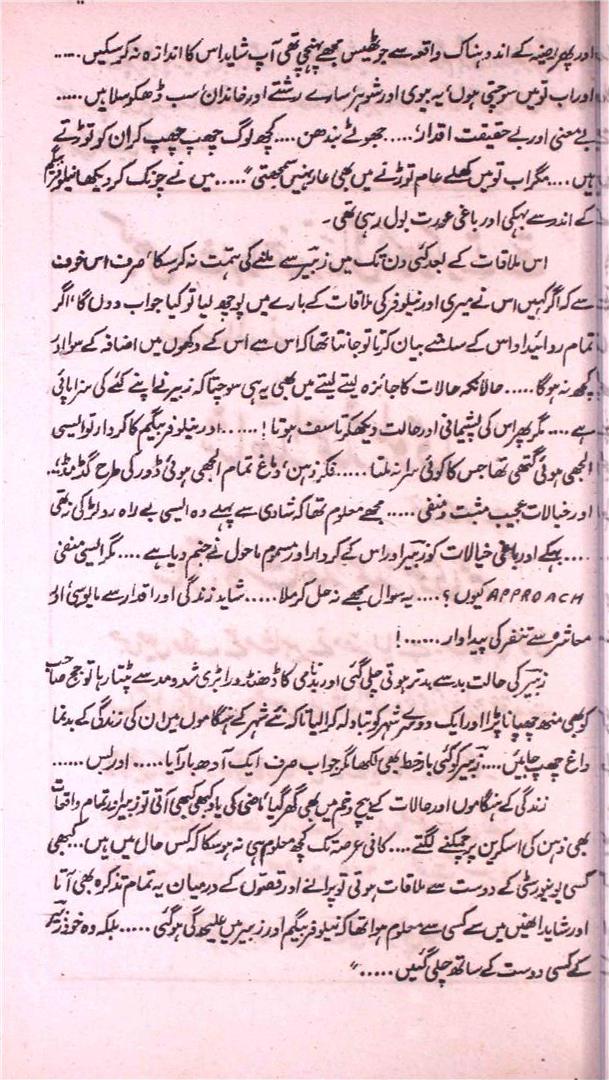 اور پھر رضیہ کے اندوہناک واقعہ سے جو ٹھیس مجھے پہنچی تھی آپ شاید اس کا اندازہ نہ کر سکیں .....
اور اب تو میں سوچتی ہوں، یہ بیوی اور شوہر، سارے رشتے اور خاندان، سب ڈھکوسلا ہیں .....
بے معنی اور بے حقیقت اقدار ..... جھوٹے بندھن .... کچھ لوگ چھپ چھپ کر ان کو توڑتے
ہیں .... مگر اب تو میں کھلے عام توڑنے میں بھی عار نہیں سمجھتی" ..... میں نے چونک کر دیکھا نیلوفر بیگم
کے اندر سے بہکی اور باغی عورت بول رہی تھی ۔
اس ملاقات کے بعد کئی دن تک میں زبیر سے ملنے کی ہمت نہ کر سکا، صرف اس خوف
سے کہ اگر کہیں اس نے میری اور نیلوفر کی ملاقات کے بارے میں پوچھ لیا تو کیا جواب دوں گا، اگر
تمام روائیداد اس کے سامنے بیان کرتا تو جانتا تھا کہ اس سے اس کے دکھوں میں اضافہ کے سوا اور
کچھ نہ ہوگا ..... حالانکہ حالات کا جائزہ لیتے لیتے میں بھی یہی سوچتا کہ زبیر نے اپنے کئے کی سزا پائی
ہے .... مگر پھر اس کی پشیمانی اور حالت دیکھ کر تاسف ہوتا ! ...... اور نیلوفر بیگم کا کردار تو ایسی
الجھی ہوئی گتھی تھا جس کا کوئی سرا نہ ملتا ..... فکر، ذہن، دماغ تمام الجھی ہوئی ڈور کی طرح گڈمڈ ...
اور خیالات عجیب مثبت و منفی ..... مجھے معلوم تھا کہ شادی سے پہلے وہ ایسی بے راہ رو لڑکی نہ تھی
.... بہکے اور باغی خیالات کو زبیر اور اس کے کردار اور مسموم ماحول نے جنم دیا ہے .... مگر ایسی منفی
APPROACH کیوں ؟ .... یہ سوال مجھ سے نہ حل کر ملا ..... شاید زندگی اور اقدار سے مایوسی اور
معاشرہ سے تنفر کی پیداوار ...... !
زبیر کی حالت بد سے بدتر ہوتی چلی گئی اور بدنامی کا ڈھنڈورا بڑی شد و مد سے پٹتا رہا تو جج صاحب
کو بھی منھ چھپانا پڑا اور ایک دوسرے شہر کو تبادلہ کرا لیا تاکہ نئے شہر کے ہنگاموں میں ان کی زندگی کے بدنما
داغ چھپ جائیں .... زبیر کو کئی بار خط بھی لکھا مگر جواب صرف ایک آدھ بار آیا ..... اور بس ......
زندگی کے ہنگاموں اور حالات کے پیچ و خم میں بھی گھر گیا، ماضی کی یاد کبھی کبھی آتی تو زبیر اور تمام واقعات
بھی ذہن کی اسکرین پر چمکنے لگتے .... کافی عرصہ تک کچھ معلوم ہی نہ ہو سکا کہ کس حال میں ہیں ... کبھی
کسی یونیورسٹی کے دوست سے ملاقات ہوتی تو پرانے اور قصوں کے درمیان یہ تمام تذکرہ بھی آتا
اور شاید انھیں میں سے کسی سے معلوم ہوا تھا کہ نیلوفر بیگم اور زبیر میں علیحدگی ہو گئی ..... بلکہ وہ خود زبیر
کے کسی دوست کے ساتھ چلی گئیں ....."